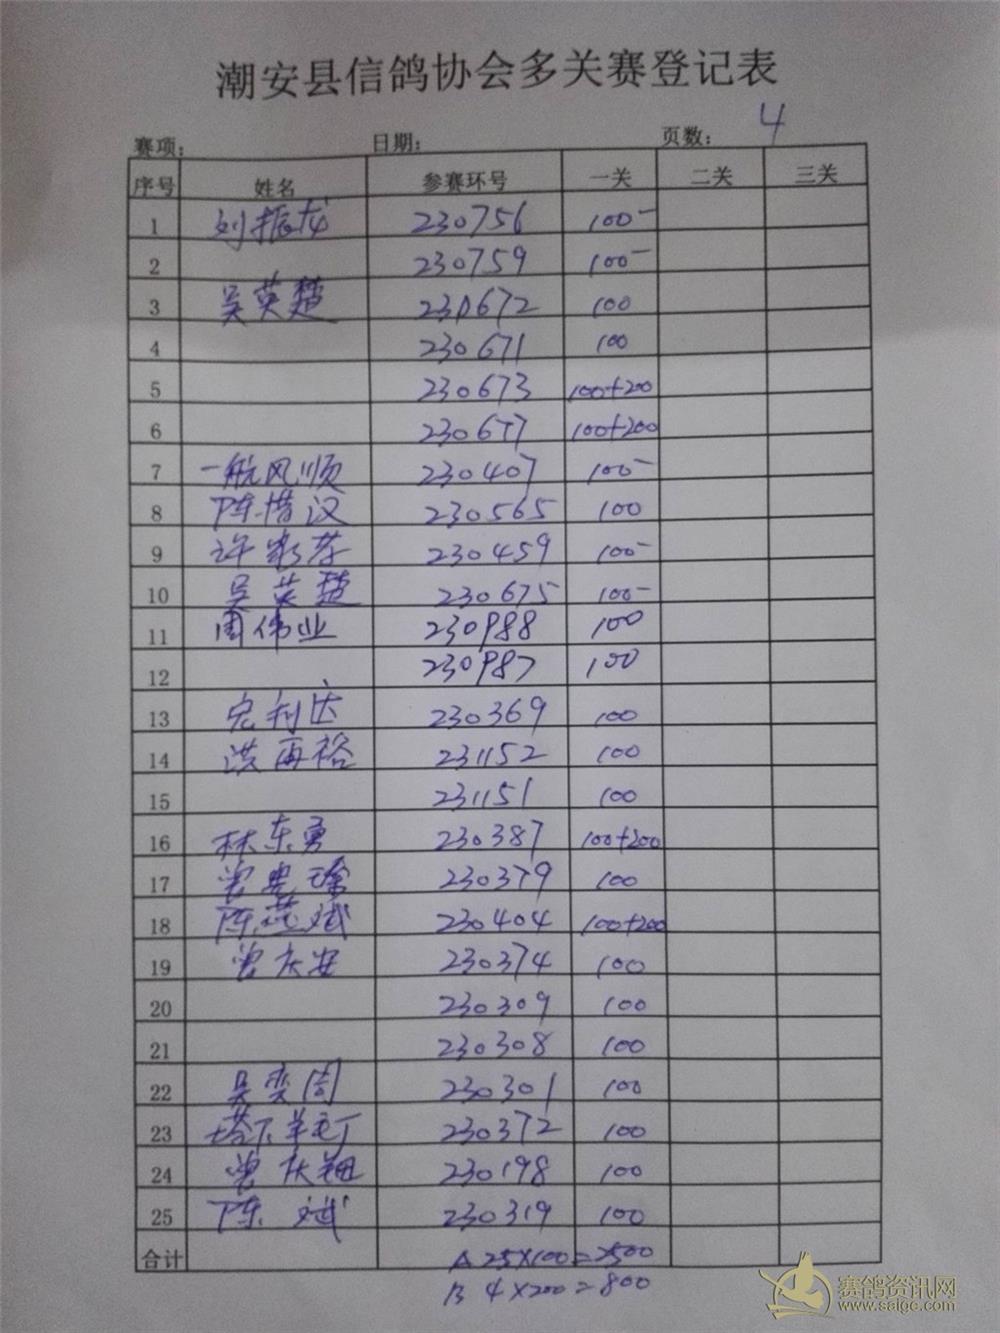 潮安县信鸽协会多关赛登记表
赛项： 日期： 页数： 4
序号 姓名 参赛环号 一关 二关 三关
1 刘振龙 230756 100-
2 230759 100-
3 吴英楚 230672 100
4 230671 100
5 230673 100+200
6 230677 100+200
7 一航风顺 230407 100-
8 陈惜汉 230565 100
9 许 230459 100-
10 吴英楚 230675 100-
11 周伟业 230988 100
12 230987 100
13 宏利达 230369 100
14 洪再裕 231152 100
15 231151 100
16 林东勇 230387 100+200
17 曾 230379 100
18 陈 斌 230404 100+200
19 曾庆安 230374 100
20 230309 100
21 230308 100
22 吴奕周 230301 100
23 塔下羊毛丁 230372 100
24 曾庆翔 230198 100
25 陈 斌 230319 100
合计 A 25×100=2500
B 4×200=800
赛鸽资讯网
www.saige.com